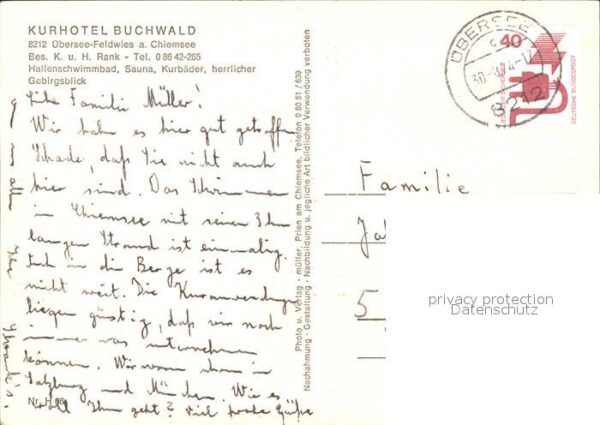 KURHOTEL BUCHWALD
8212 Übersee-Feldwies a. Chiemsee
Bes. K. u. H. Rank - Tel. 0 86 42-265
Hallenschwimmbad, Sauna, Kurbäder, herrlicher
Gebirgsblick
Liebe Familie Müller!
Wir haben es hier gut getroffen
Schade, daß Sie nicht auch
hier sind. Das Schwimmen
im Chiemsee mit seinen 3 km
langen Strand ist einmalig.
Auch in die Berge ist es
nicht weit. Die Kuranwendungen
liegen günstig, daß wir noch
immer was unternehmen
können. Wir waren schon in
Salzburg und München. Wie es
wohl Ihnen geht? Viel Grüße
an alle Ihre
Photo u. Verlag - müller, Prien am Chiemsee, Telefon 0 80 51 / 639.
Nachahmung - Gestaltung - Nachbildung u. jegliche Art bildlicher Verwendung verboten
ÜBERSEE
8212
40
DEUTSCHE BUNDESPOST
Familie
5
privacy protection
Datenschutz